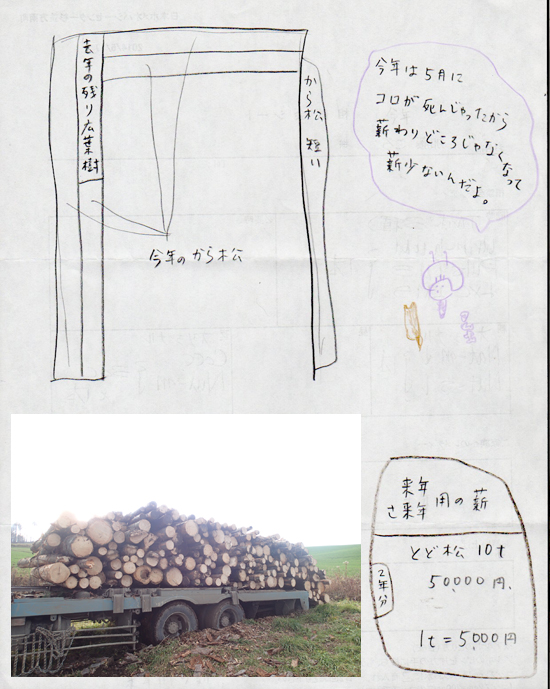 去年の残り広葉樹
から松 短い
今年のから松
今年は5月に
コロが死んじゃったから
薪わりどころじゃなくなって
薪少ないんだよ。
来年
さ来年 用の薪
とど松 10t
2年分
50,000円、
1t=5,000円